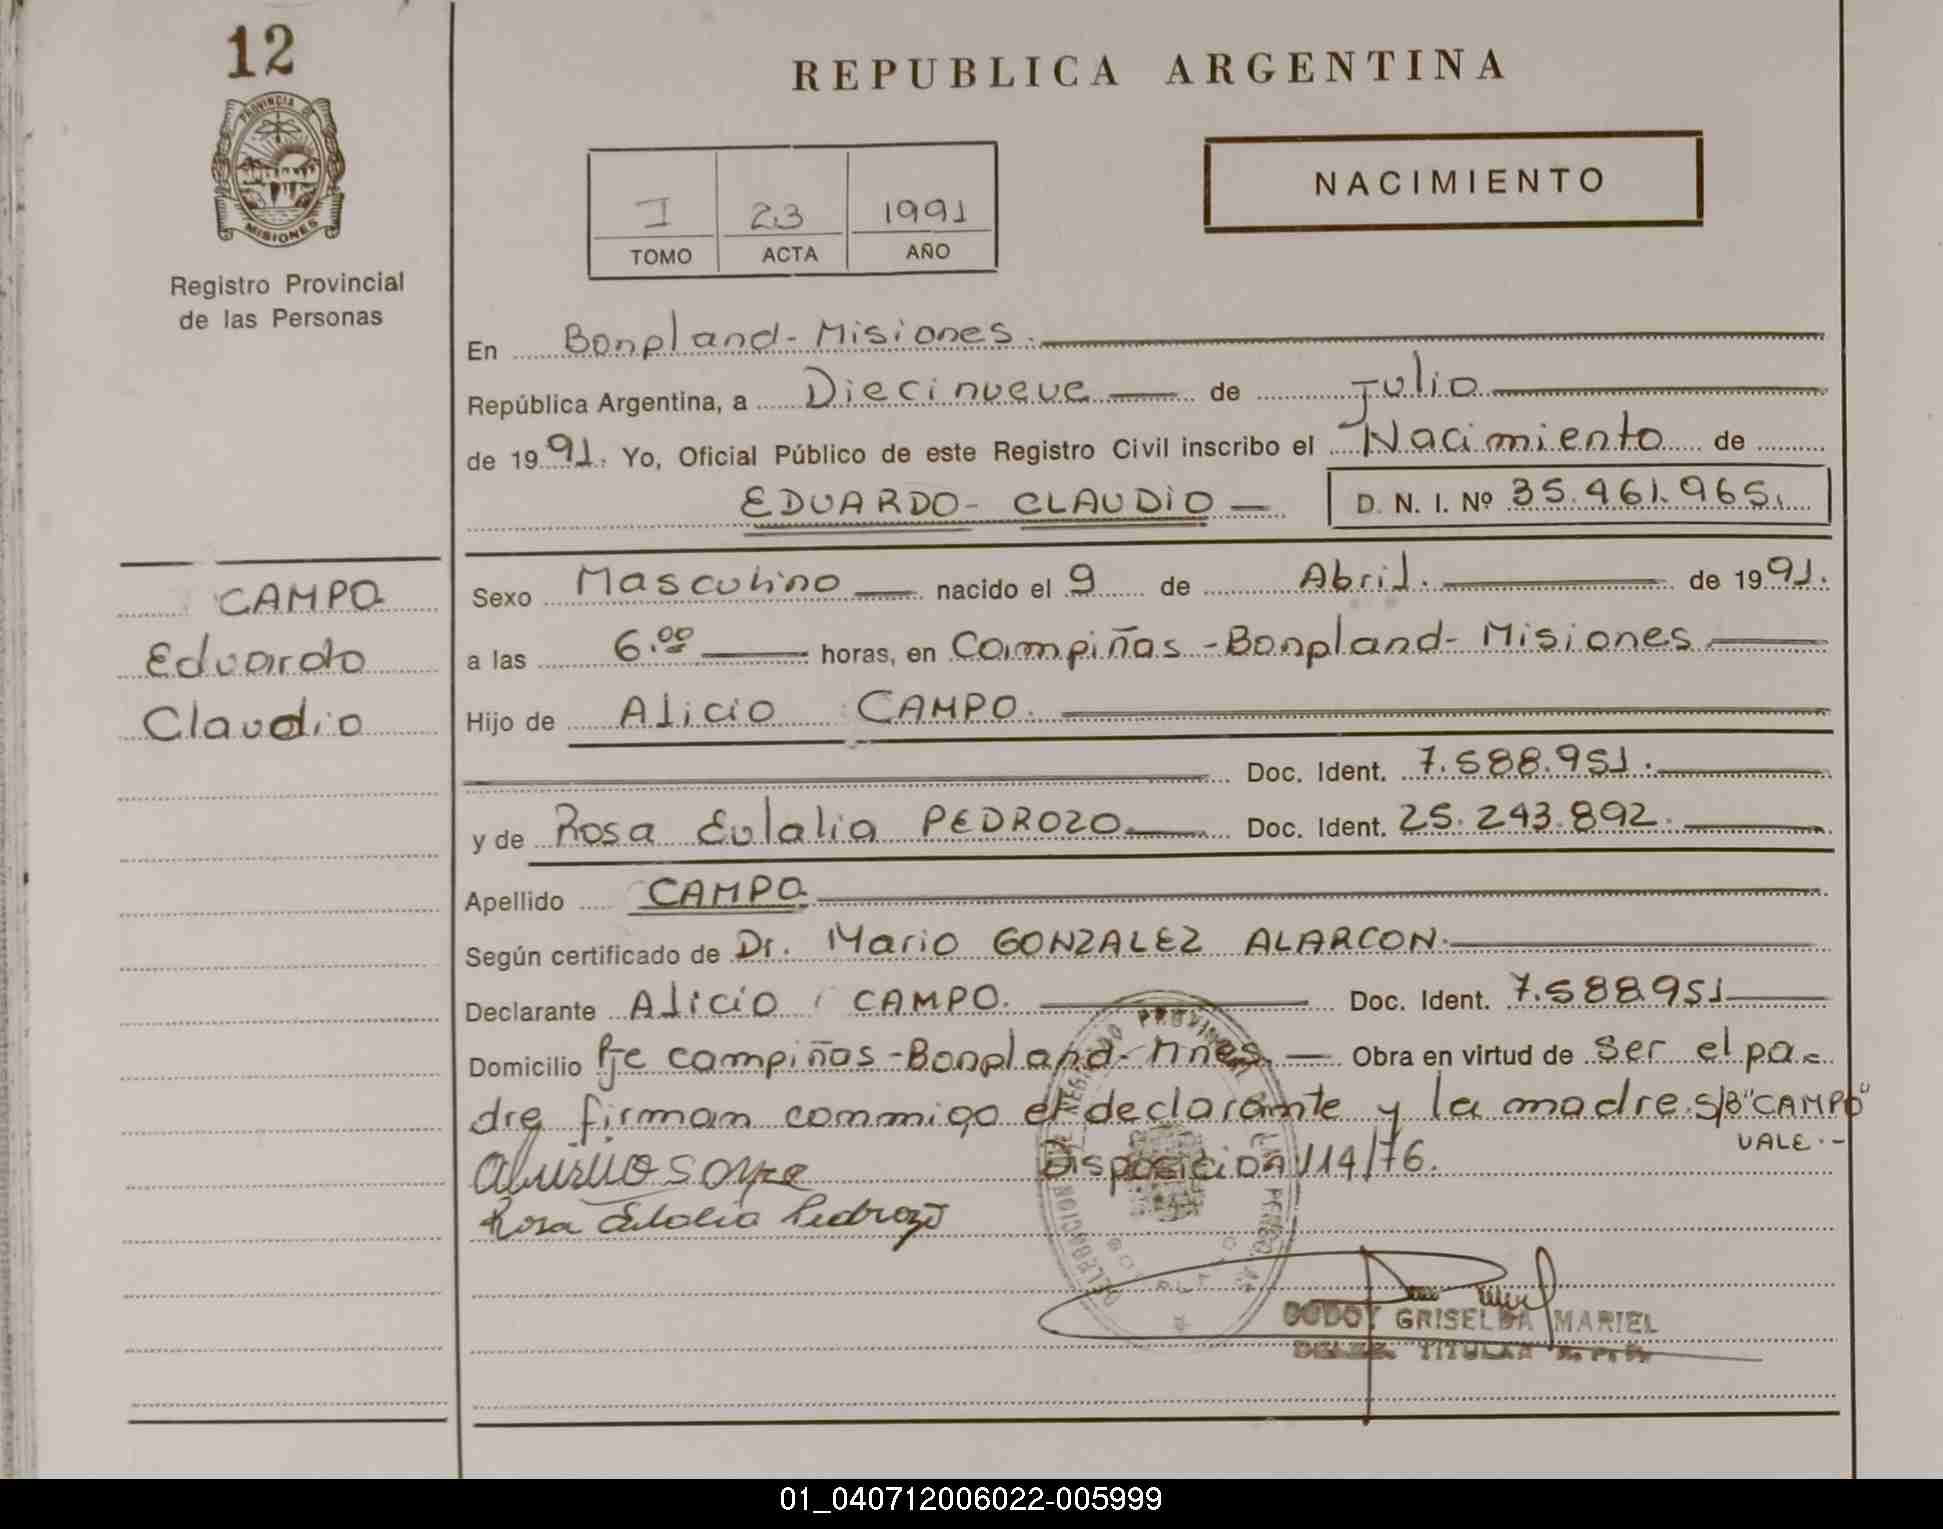 12
PROVINCIA DE
MISIONES
Registro Provincial
de las Personas
CAMPO
Eduardo
Claudio
REPUBLICA ARGENTINA
NACIMIENTO
I 23 1991
TOMO ACTA AÑO
En Bonpland - Misiones.
República Argentina, a Diecinueve de Julio
de 1991. Yo, Oficial Público de este Registro Civil inscribo el Nacimiento de
EDUARDO - CLAUDIO - D. N. I. Nº 35.461.965.
Sexo Masculino nacido el 9 de Abril. de 1991.
a las 6.00 horas, en Campiñas - Bonpland - Misiones
Hijo de Alicio CAMPO.
Doc. Ident. 7.588.951.
y de Rosa Eulalia PEDROZO Doc. Ident. 25.243.892.
Apellido CAMPO
Según certificado de Dr. Mario GONZALEZ ALARCON.
Declarante Alicio CAMPO. Doc. Ident. 7.588951
Domicilio Pje campiñas - Bonpland - Mnes. Obra en virtud de ser el pa-
dre firman conmigo el declarante y la madre. S/B "CAMPO"
VALE.-
Disposicion 114/76.
Rosa Eulalia Pedrozo
GODOY GRISELDA MARIEL
TITULAR
01_040712006022-005999